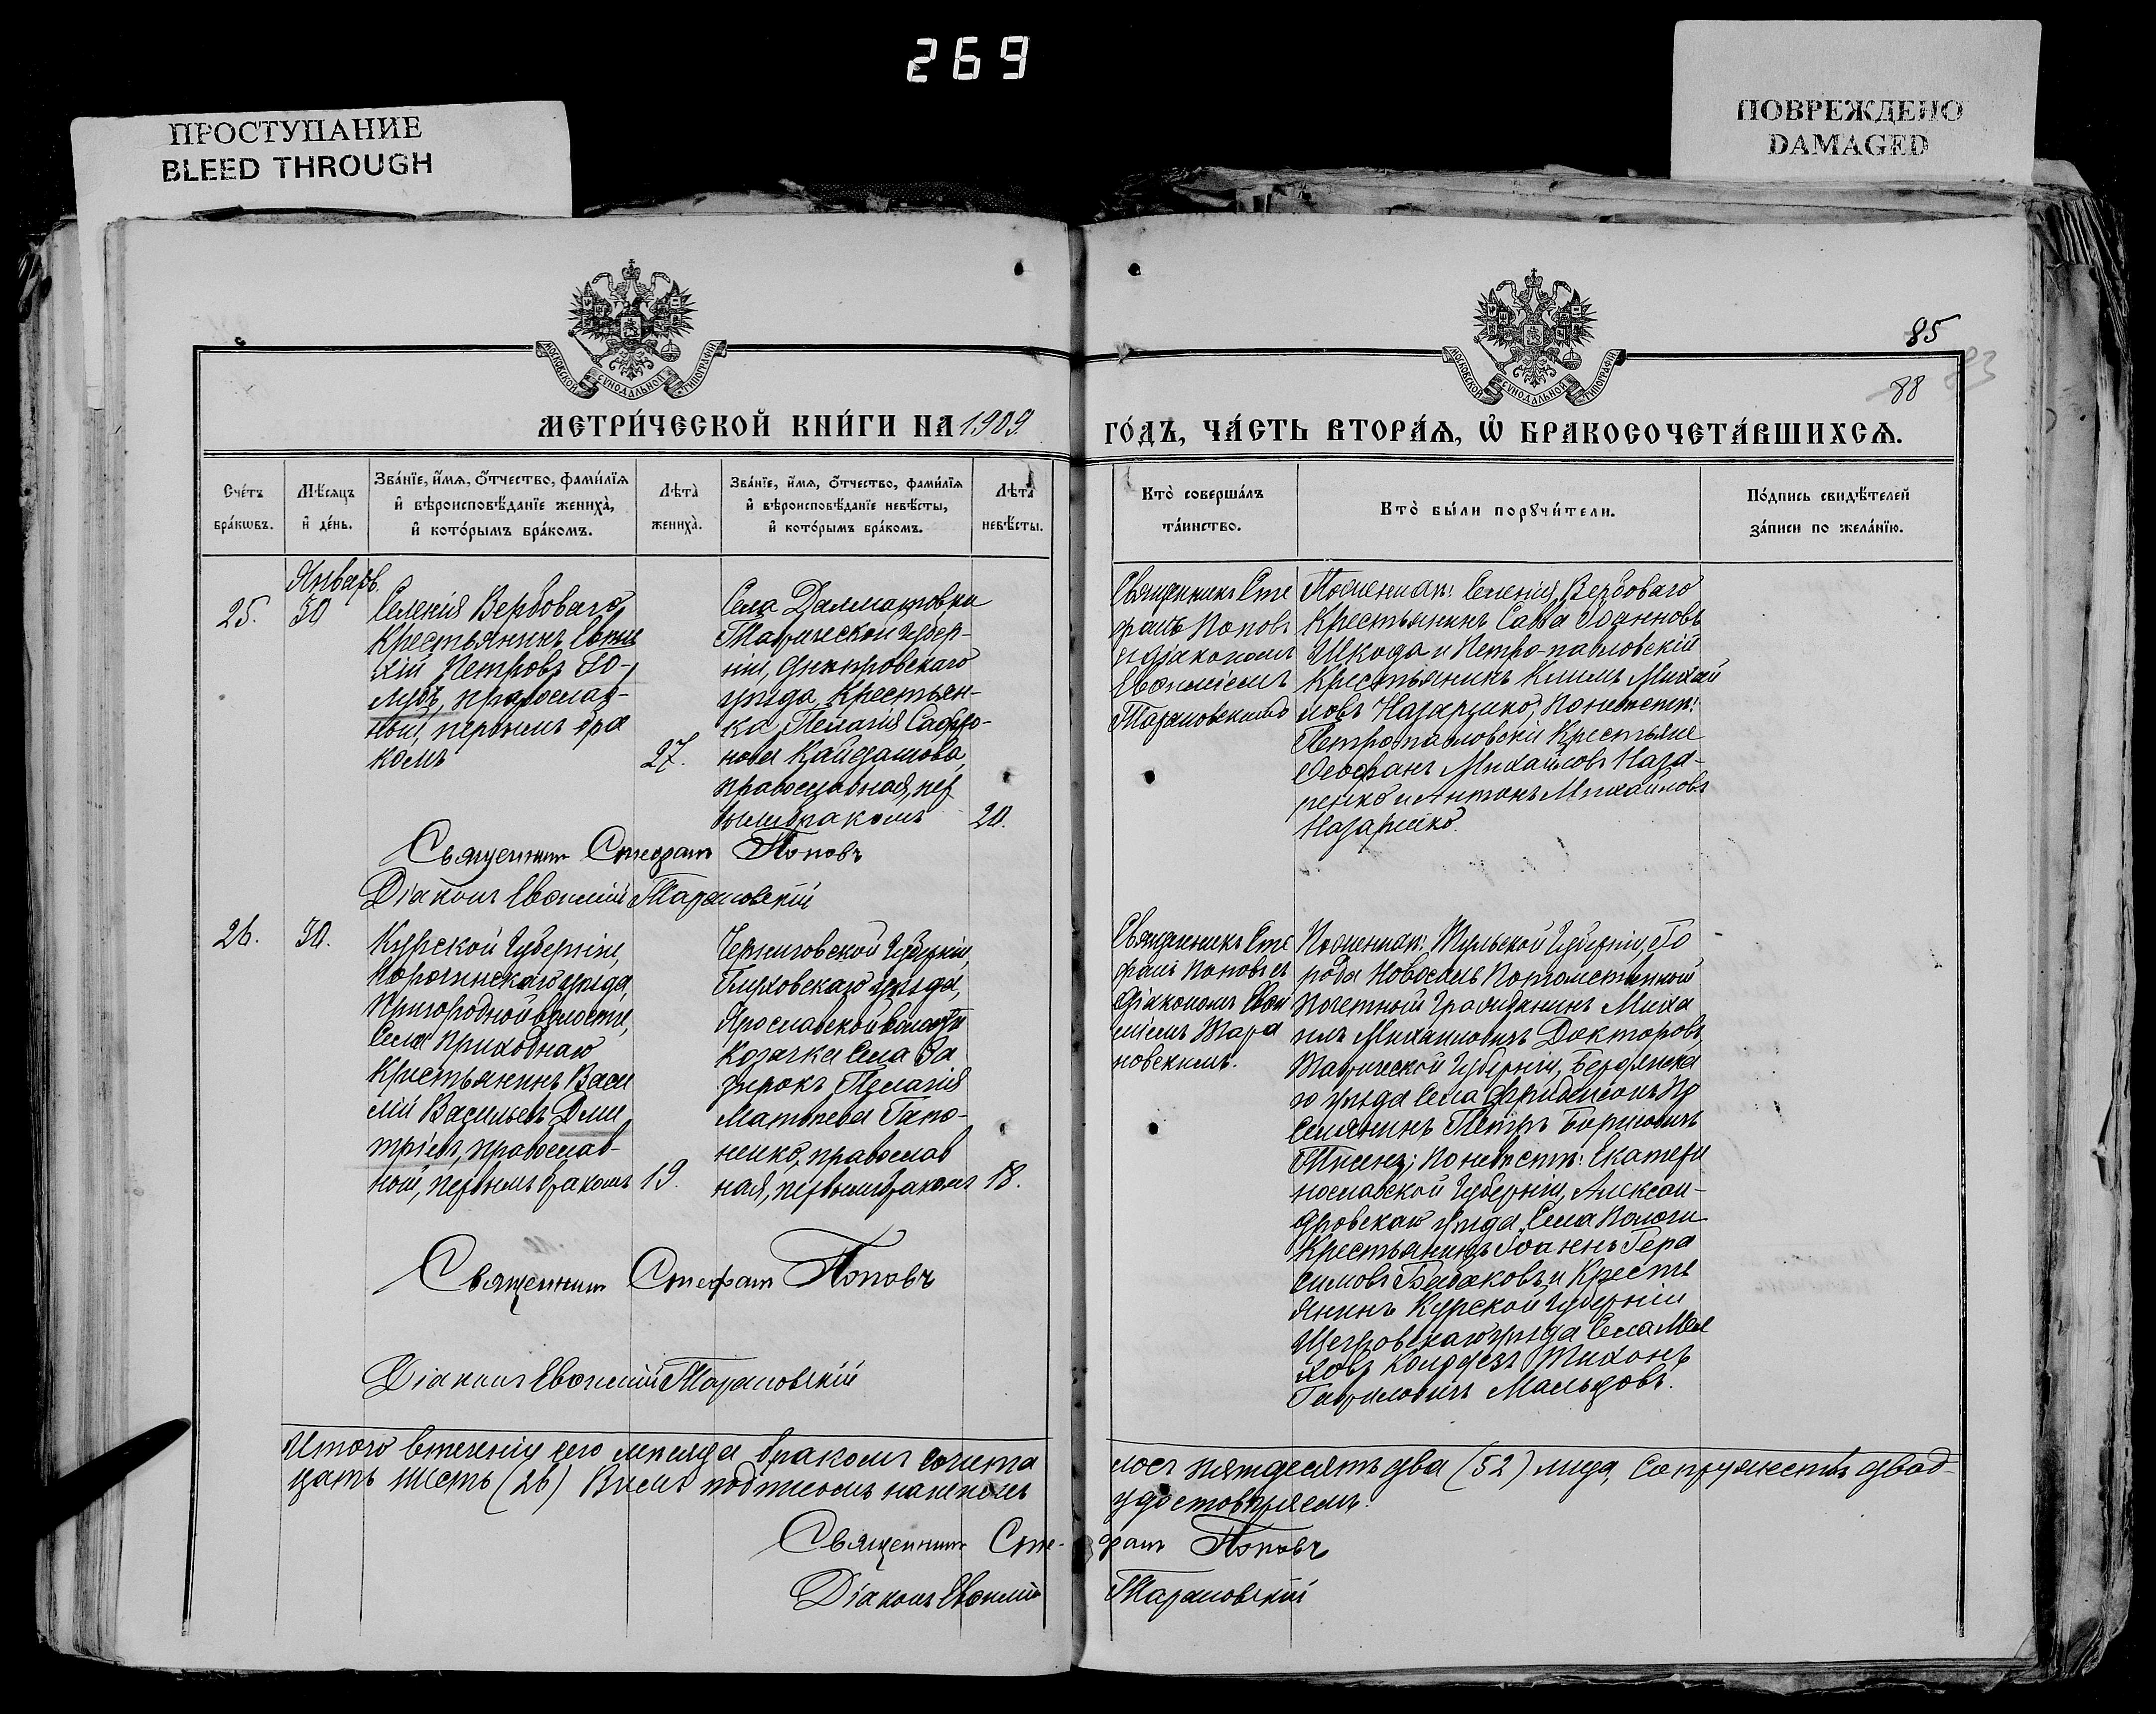 269
ПРОСТУПАНИЕ
BLEED THROUGH
ПОВРЕЖДЕНО
DAMAGED
МОСКОВСКОЙ СѴНОДАЛЬНОЙ ТИПОГРАФІИ
МОСКОВСКОЙ СѴНОДАЛЬНОЙ ТИПОГРАФІИ
85
83
88
МЕТРИ́ЧЕСКОЙ КНИ́ГИ НА 1909
ГО́ДЪ, ЧА́СТЬ ВТОРА́Ѧ, Ѡ҆ БРАКОСОЧЕТА́ВШИХСѦ.
Сче́тъ
бра́кѡвъ.
Мѣ́сяцъ
и҆ де́нь.
Зва́нїе, и҆́мѧ, ѻ҆́тчество, фами́лїѧ
и҆ вѣроисповѣ́данїе жениха̀,
и҆ кото́рымъ бра́комъ.
Лѣта̀
жениха̀.
Зва́нїе, и҆́мѧ, ѻ҆́тчество, фами́лїѧ
и҆ вѣроисповѣ́данїе невѣ́сты,
и҆ кото́рымъ бра́комъ.
Лѣта̀
невѣ́сты.
Кто̀ соверша́лъ
та́инство.
Кто̀ бы́ли порꙋчи́тели.
По́дпись свидѣ́телей
за́писи по жела́нїю.
Январь.
25.
30
Селенія Вербоваго
Крестьянинъ Евти
хій Петровъ Го-
лубъ, православ-
ный, первымъ бра
комъ
27.
Села Далматовки
Таврической Губер-
ніи, Днѣпровскаго
уѣзда, крестьян-
ка Пелагія Сафро-
нова Кайдашова,
православная, пер
вымъ бракомъ
20.
Священникъ Сте
фанъ Поповъ
и діакономъ
Евѳиміемъ
Тарановскимъ
По женихѣ: Селенія Вербоваго
Крестьянинъ Савва Іоанновъ
Шкода и Петро-павловскій
Крестьянинъ Климъ Михай
ловъ Назаренко, по невѣстѣ:
Петропавловскіи Крестьяне
Ѳеофанъ Михайловъ Наза-
ренко и Антонъ Михайловъ
Назаренко.
Священникъ Стефанъ Поповъ
Діаконъ Евѳимій Тарановскій
26.
30.
Курской Губерніи,
Корочинскаго уѣзда,
Пригородной волости,
Села Приходнаго
Крестьянинъ Васи
лій Васильевъ Дми
тріевъ, православ-
ный, первымъ бракомъ
19.
Черниговской Губерніи,
Глуховскаго уѣзда,
Ярославской волости
Козачка Села За
Пелагія
Матѳеева Гапо-
ненко, православ
ная, первымъ бракомъ
18.
Священникъ Сте
фанъ Поповъ съ
діакономъ Евѳи
міемъ Тара
новскимъ.
По женихѣ: Тульской Губерніи, Го
рода Новосиль Потомственной
почетной Гражданинъ Миха
илъ Михаиловичъ Докторовъ,
Таврической Губерніи, Бердянска
го уѣзда Села По
селянинъ Петръ Борисовичъ
Тисенъ; по невѣстѣ: Екатери
нославской Губерніи, Алексан-
дровскаго уѣзда, Села Пологи
Крестьянинъ Іоаннъ Гера
симовъ и Кресть
янинъ Курской Губерніи
Щегровскаго уѣзда Села Мел
ховъ Колодезь Тихонъ
Гавриловичъ Мальцовъ.
Священникъ Стефанъ Поповъ
Діаконъ Евѳимій Тарановскій
Итого втеченіи сего мѣсяца бракомъ сочета
лось пятдесятъ два (52) лица, супружествъ двад-
цать шесть (26) Въ чемъ подписомъ нашимъ
удостовѣряемъ.
Священникъ Сте-
фанъ Поповъ
Діаконъ Евѳимій
Тарановскій